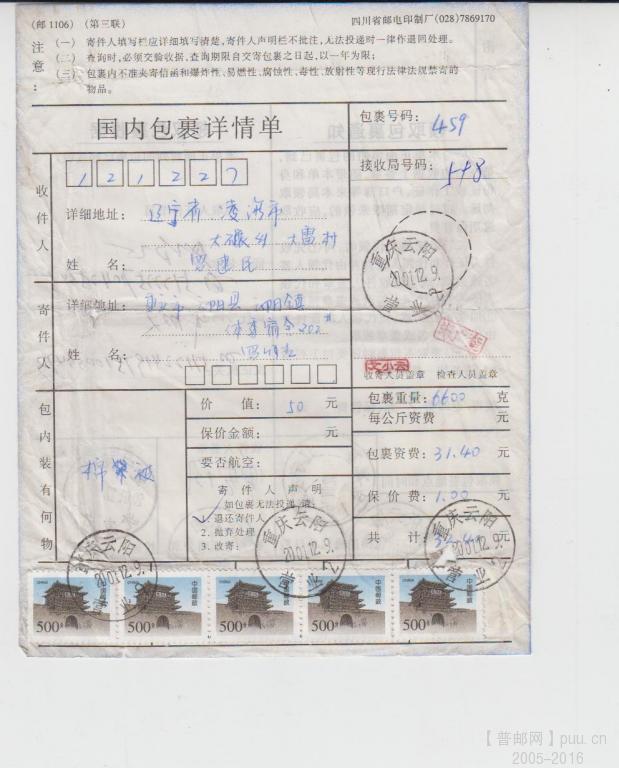 (邮1106) (第三联)
四川省邮电印制厂(028)7869170
注意:
(一) 寄件人填写栏应详细填写清楚,寄件人声明栏不批注,无法投递时一律作退回处理。
(二) 查询时,必须交验收据,查询期限自交寄包裹之日起,以一年为限;
(三) 包裹内不准夹寄信函和爆炸性、易燃性、腐蚀性、毒性、放射性等现行法律法规禁寄的
物品。
国内包裹详情单
包裹号码: 459
接收局号码: 548
收件人
121227
详细地址: 辽宁省 凌海市
大碾乡 大雷村
姓 名:
寄件人
详细地址: 重庆市 县 镇
宿舍202#
姓 名:
重庆云阳
2001.12.9.
营业
文小云
收寄人员盖章 检查人员盖章
包内装有何物
棉 被
价 值: 50 元
保价金额: 元
要否航空:
寄 件 人 声 明
如包裹无法投递,请:
1.退还寄件人
2.抛弃处理
3.改寄:
包裹重量: 6600 克
每公斤资费 元
包裹资费: 31.40 元
保 价 费: 1.00 元
共 计 32.40 元
重庆云阳
2001.12.9.
营业
重庆云阳
2001.12.9.
营业2
重庆云阳
2001.12.9.
营业2
中国邮政
500分
中国邮政
500分
中国邮政
500分
中国邮政
500分
中国邮政
500分
【普邮网】puu.cn
2005-2016